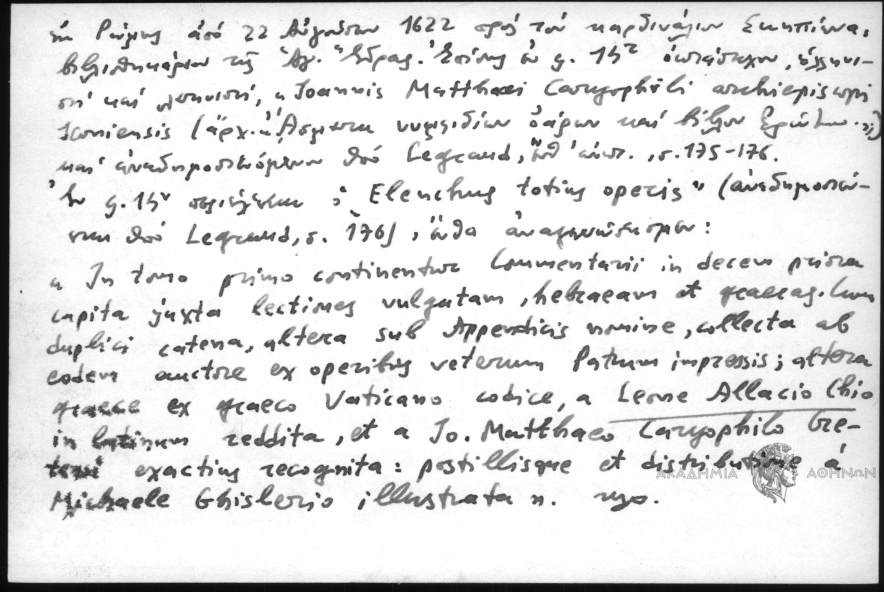 ἐν Ρώμης ἀπό 22 Αὐγούστου 1622 πρός τόν καρδινάλιον
βιβλιοθηκάριον τῆς Ἁγ. Ἕδρας. Ἐπίσης ἐν φ. 15r
καί λατινιστί, « Joannis Matthaei Caryophili archiepiscopi
Iconiensis (ἀρχ. καί
καί ἀναδημοσιευόμενον ὑπό Legrand, ἔνθ' ἀνωτ., σ. 175-176.
Ἐν φ. 15v περιέχεται ὁ « Elenchus totius operis » (ἀναδημοσιεύ-
εται ὑπό Legrand, σ. 176), ἔνθα ἀναγινώσκομεν:
« In tomo primo continentur Commentarii in decem priora
capita juxta lectiones vulgatam, hebraeam et graecas. Cum
duplici catena, altera sub Appendicis nomine, collecta ab
eodem auctore ex operibus veterum Patrum impressis; altera
graece ex graeco Vaticano codice, a Leone Allacio Chio
in latinum reddita, et a Jo. Matthaeo Caryophilo Cre-
tensi exactius recognita: postillisque et distributione á
Michaele Ghislerio illustrata ».
ΑΚΑΔΗΜΙΑ ΑΘΗΝΩΝ